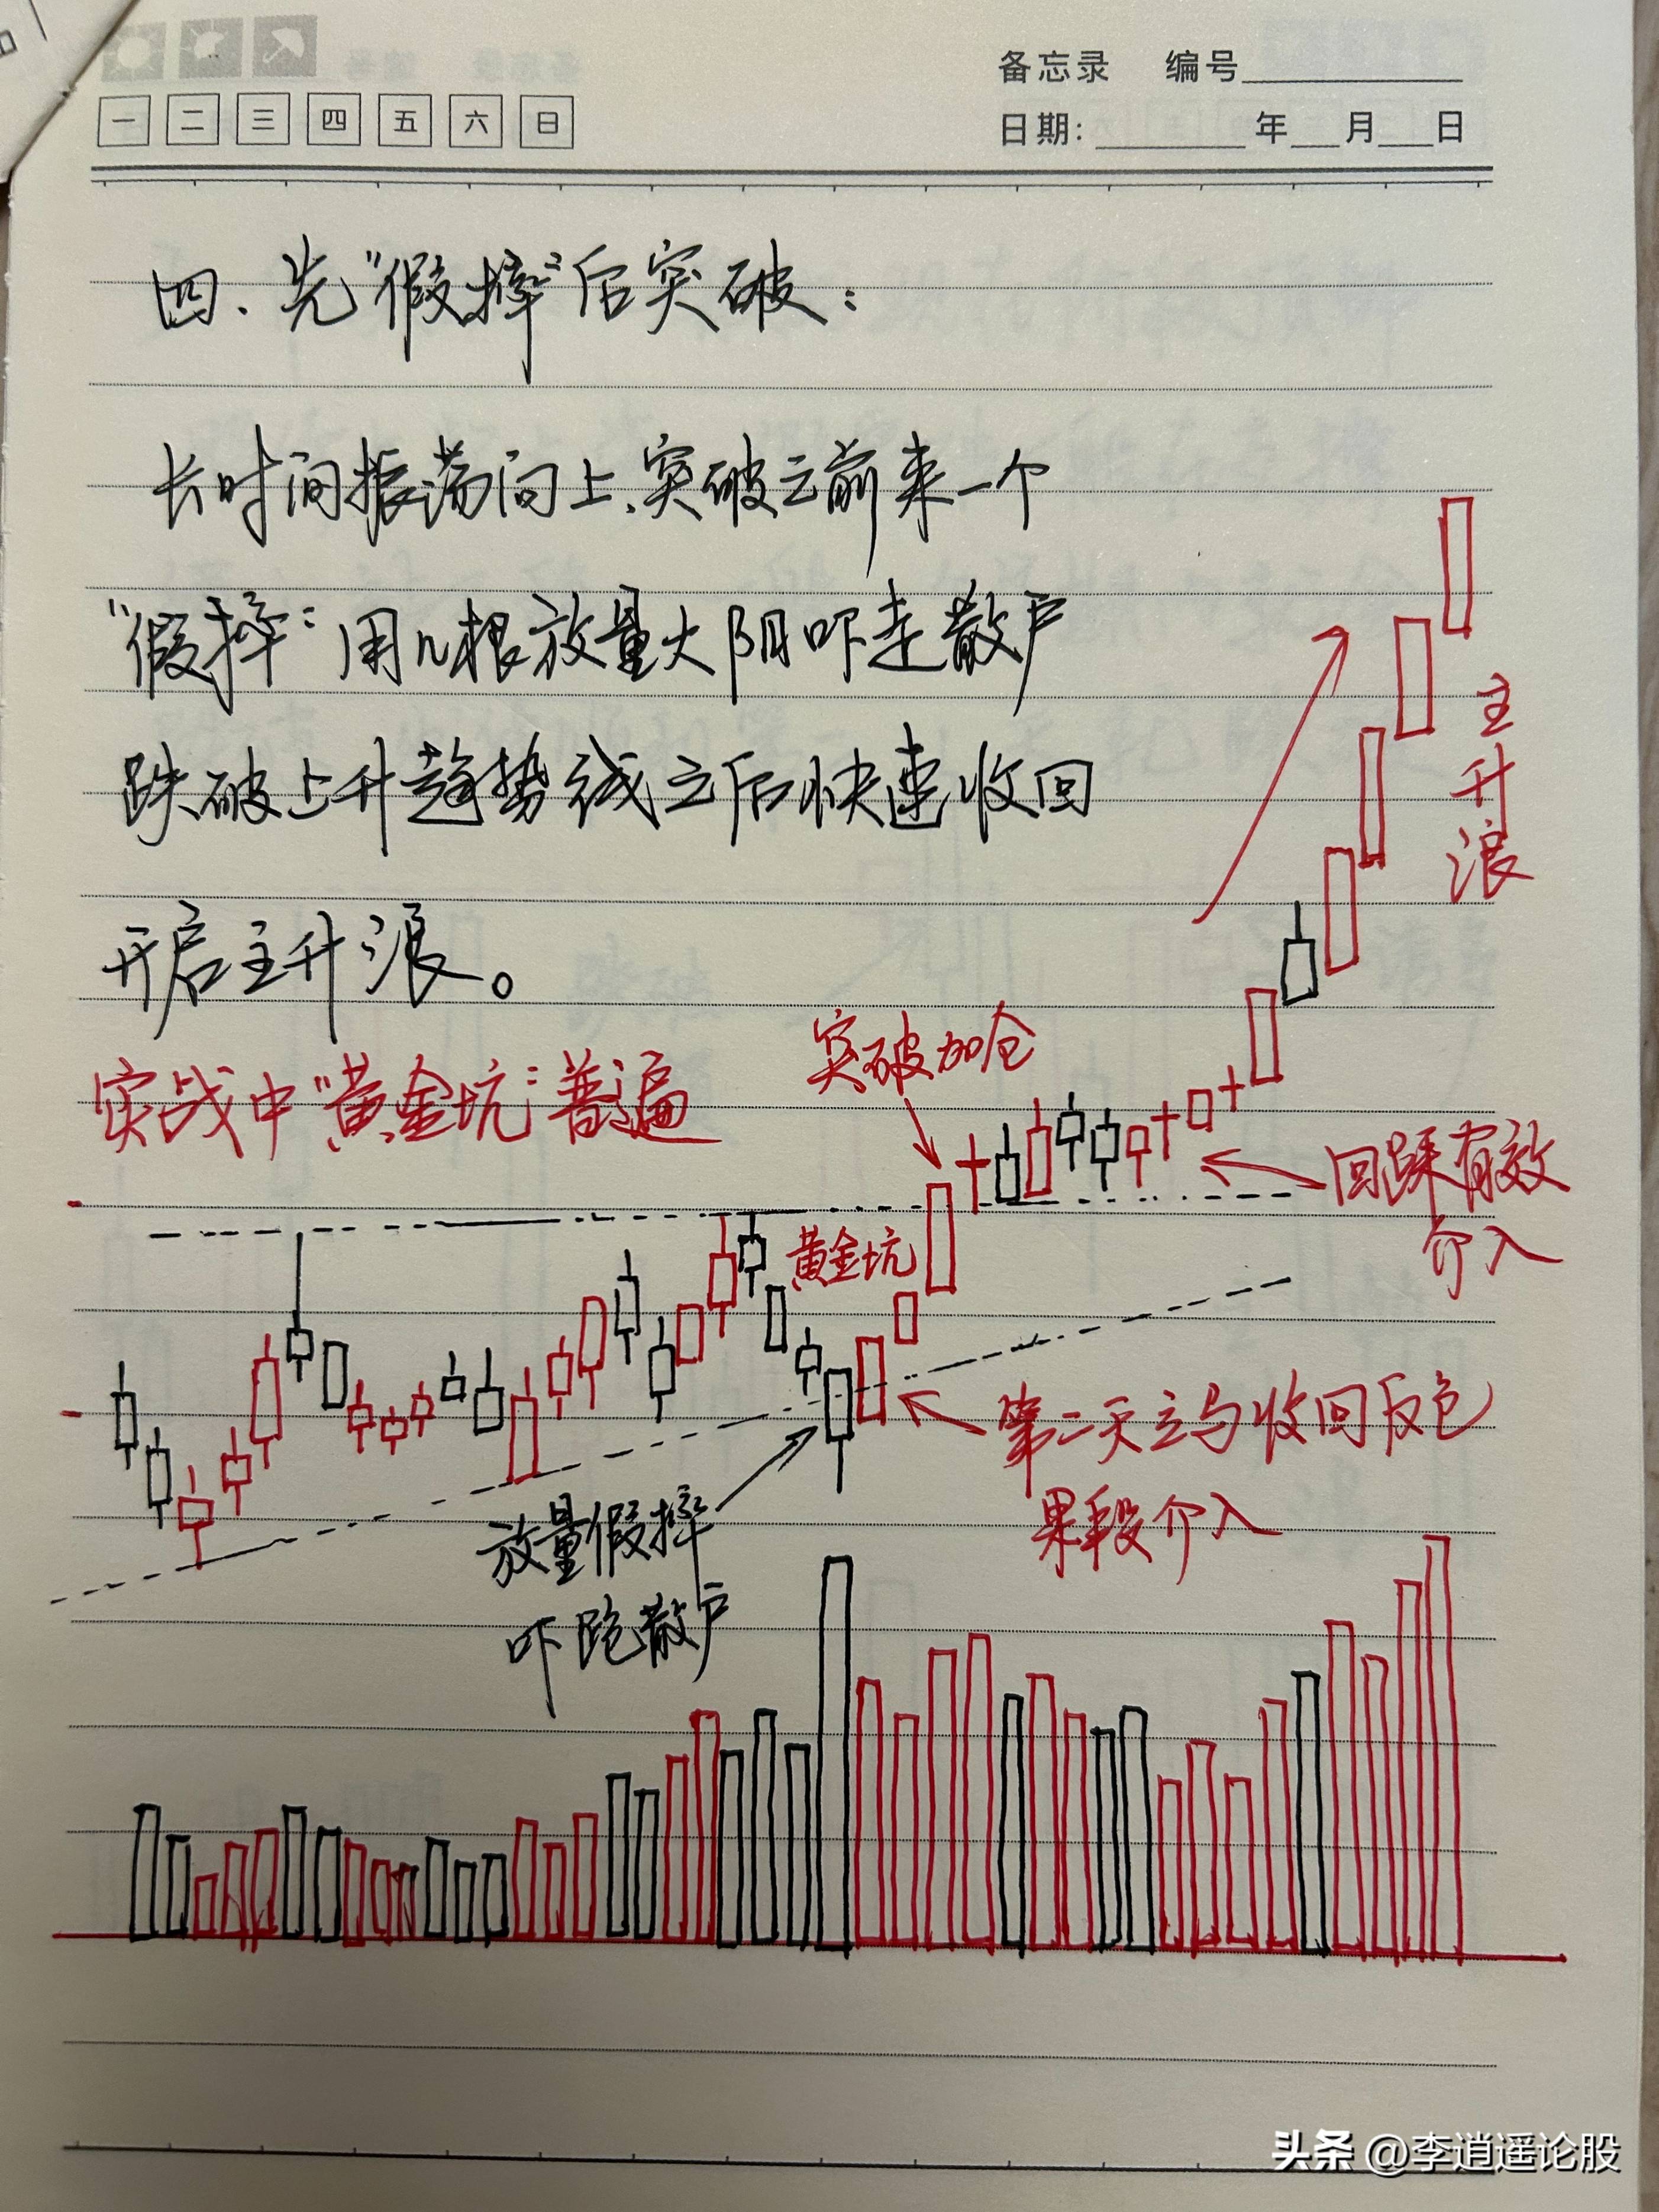 备忘录 编号
一 二 三 四 五 六 日
日期: 年 月 日
四、先“假摔”后突破：
长时间振荡向上、突破之前来一个
“假摔”用几根放量大阴吓走散户
跌破上升趋势线之后快速收回
开启主升浪。
主升浪
实战中“黄金坑”普遍
突破加仓
回踩有效
介入
黄金坑
第二天立马收回反包
果断介入
放量假摔
吓跑散户
头条 @李逍遥论股